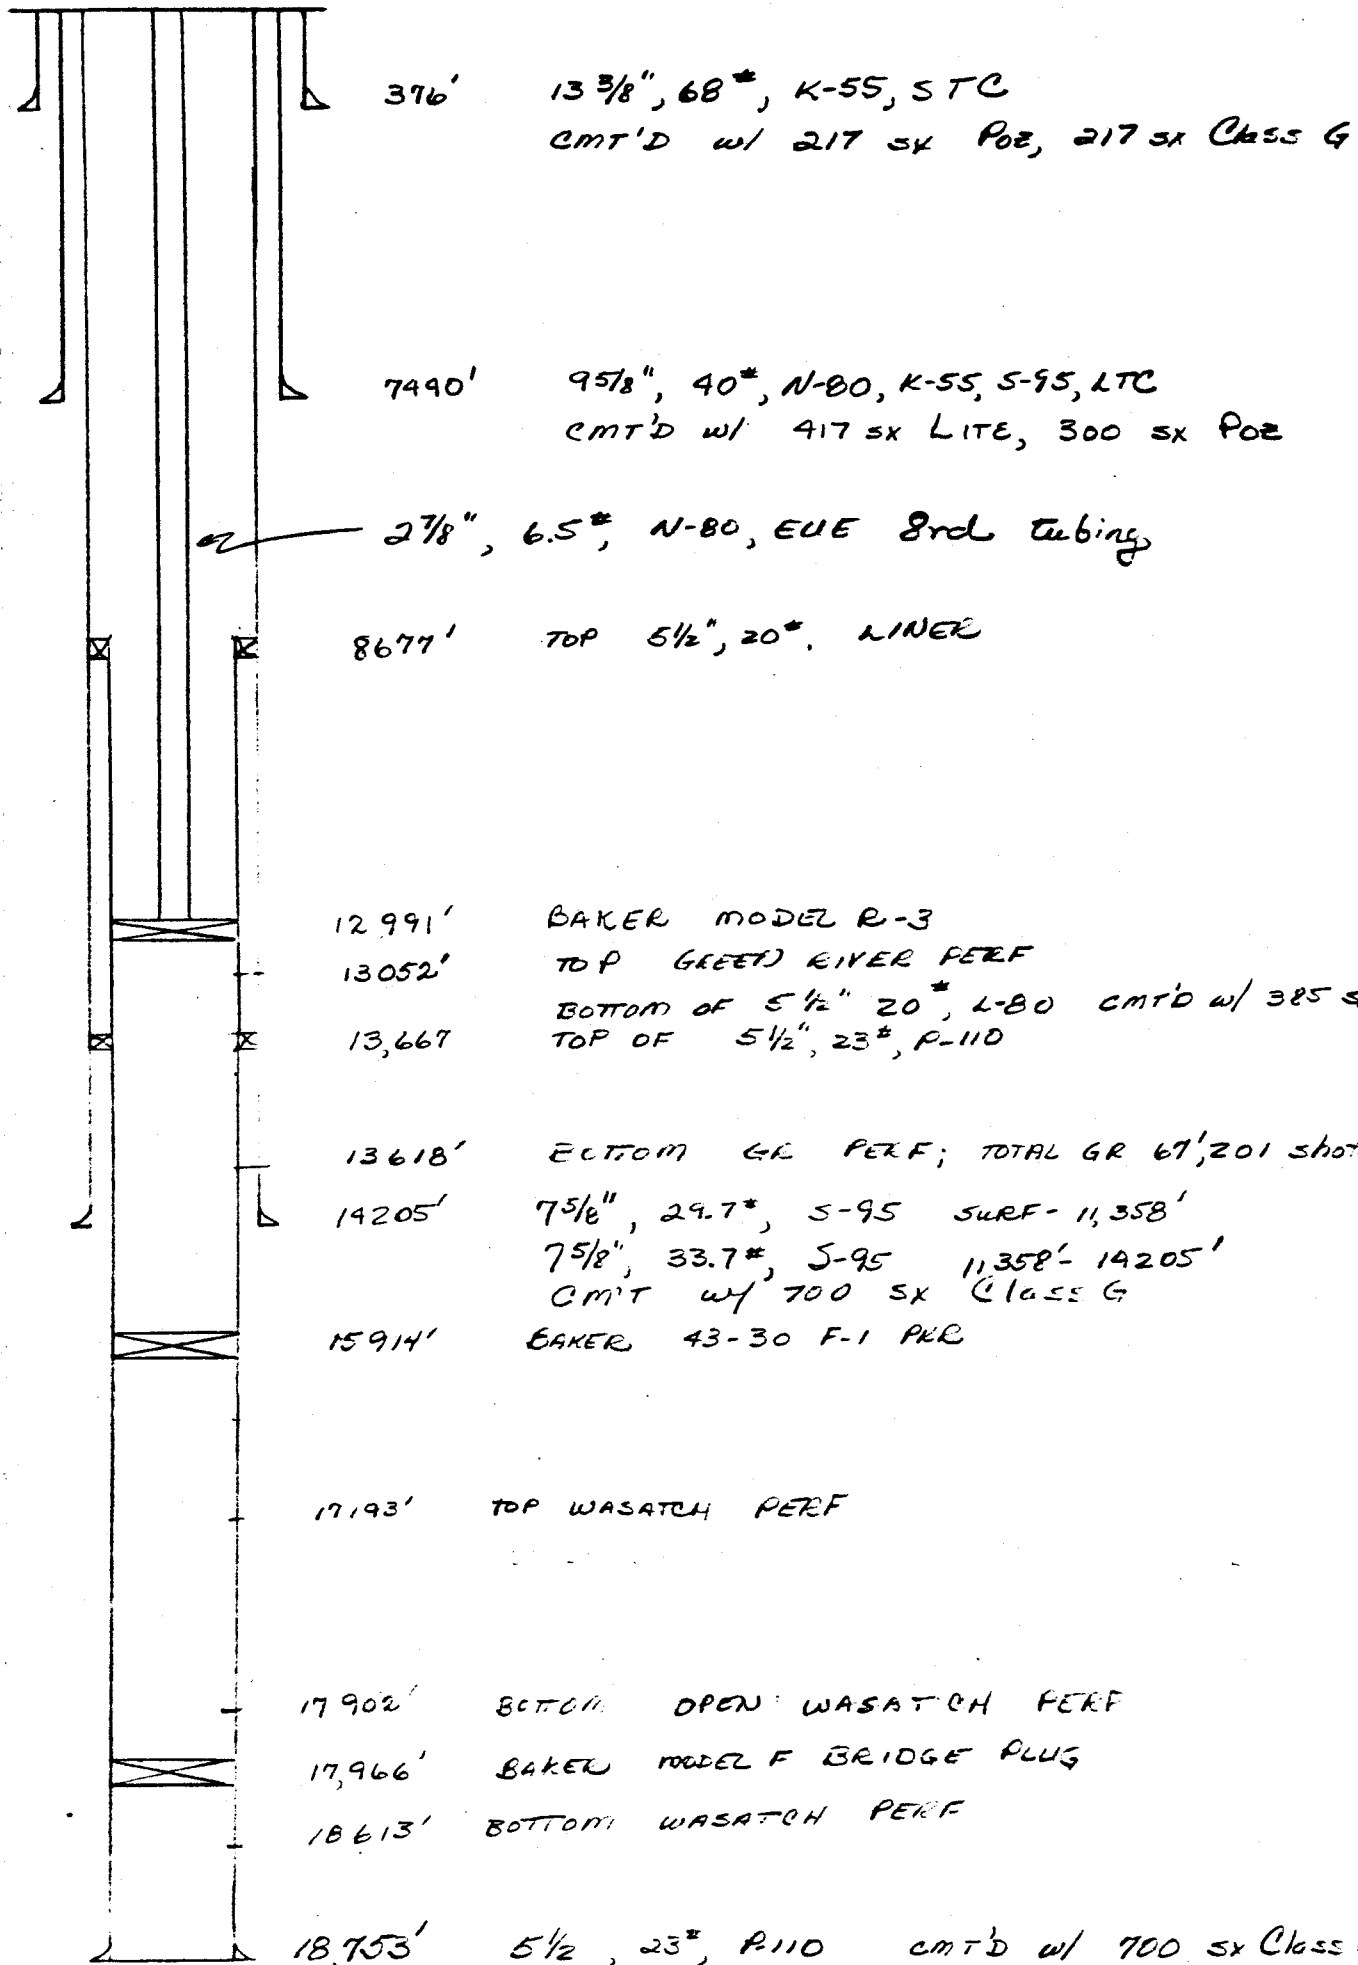 376' 13 3/8", 68#, K-55, STC
CMT'D w/ 217 sx Poz, 217 sx Class G
7490' 9 5/8", 40#, N-80, K-55, S-95, LTC
CMT'D w/ 417 sx LITE, 300 sx Poz
2 7/8", 6.5#, N-80, EUE 8rd tubing
8677' TOP 5 1/2", 20#. LINER
12991' BAKER MODEL R-3
13052' TOP GREEN RIVER PERF
BOTTOM OF 5 1/2" 20#, L-80 CMT'D w/ 385 s
13,667 TOP OF 5 1/2", 23#, P-110
13618' BOTTOM GR PERF; TOTAL GR 67', 201 shot
14205' 7 5/8", 29.7#, S-95 SURF- 11,358'
7 5/8", 33.7#, S-95 11,358'- 14205'
CM'T w/ 700 sx Class G
15914' BAKER 43-30 F-1 PKR
17193' TOP WASATCH PERF
17902' BOTTOM OPEN WASATCH PERF
17,966' BAKER MODEL F BRIDGE PLUG
18613' BOTTOM WASATCH PERF
18,753' 5 1/2, 23#, P-110 CMT'D w/ 700 sx Class